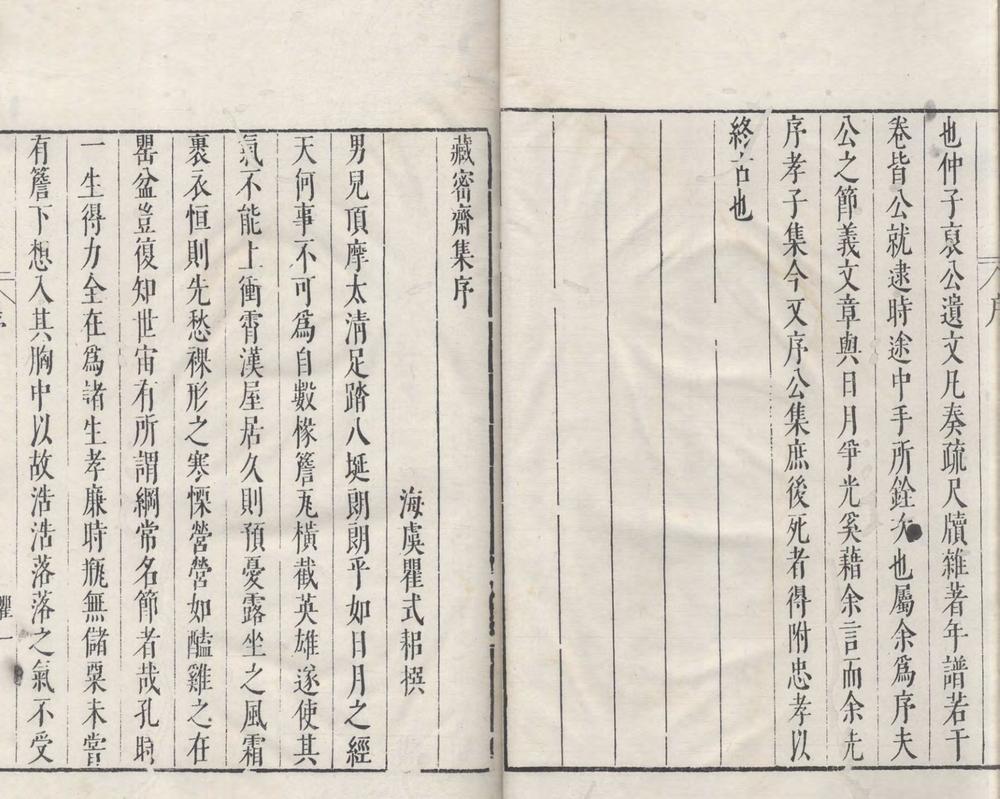 序
也仲子裒公遺文凡奏疏尺牘雜著年譜若干
卷皆公就逮時途中手所銓次也屬余爲序夫
公之節義文章與日月爭光奚藉余言而余先
序孝子集今又序公集庶後死者得附忠孝以
終古也
藏密齋集序
海虞瞿式耜撰
男兒頂摩太清足踏八埏朗朗乎如日月之經
天何事不可爲自數椽簷瓦橫截英雄遂使其
氣不能上衝霄漢屋居久則預憂露坐之風霜
裹衣恒則先愁裸形之寒慄營營如醯雞之在
罌盆豈復知世宙有所謂綱常名節者哉孔時
一生得力全在爲諸生孝廉時瓶無儲粟未嘗
有簷下想入其胸中以故浩浩落落之氣不受
瞿一